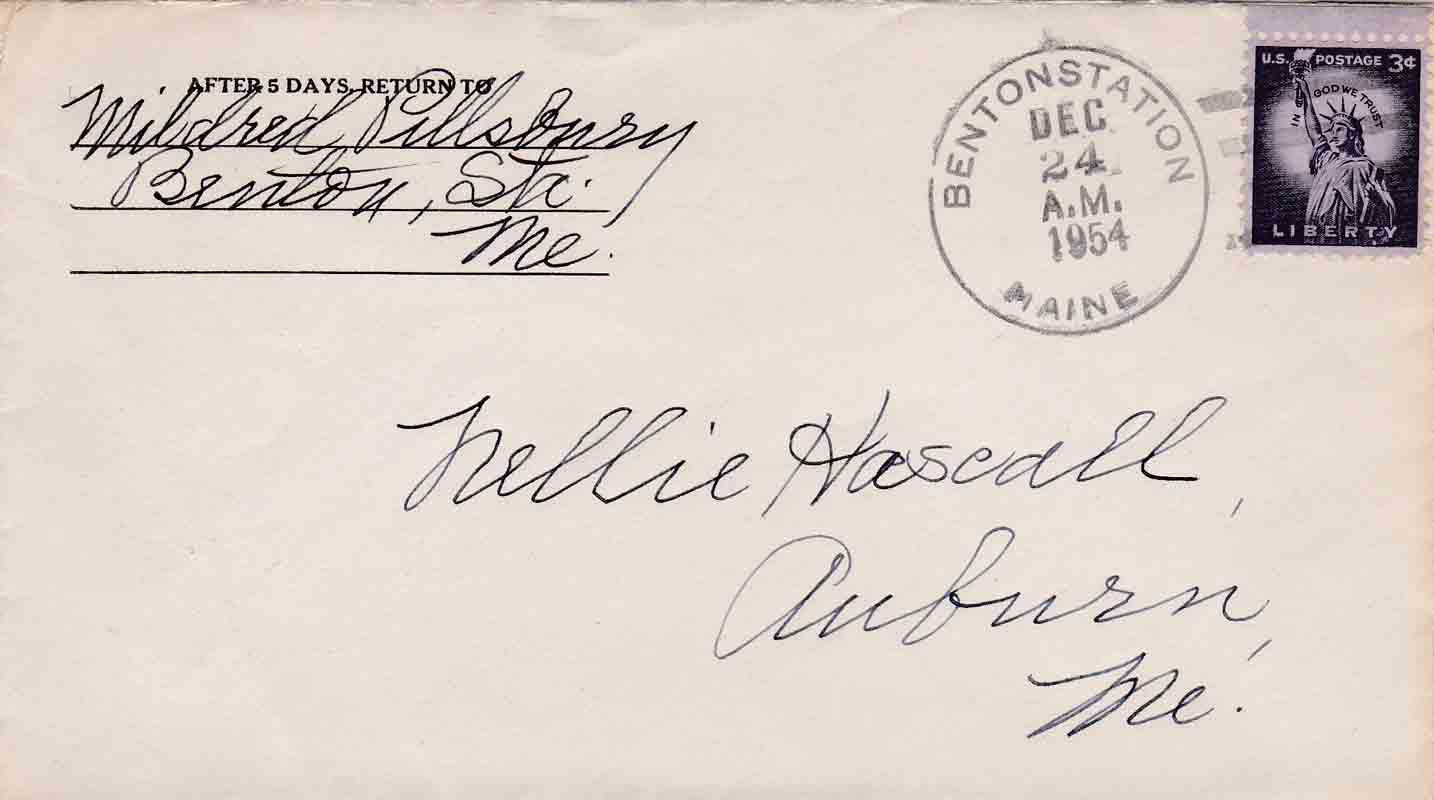 AFTER 5 DAYS, RETURN TO
Mildred Pillsbury
Benton, Sta.
Me.
BENTON STATION
DEC
24
A.M.
1954
MAINE
U.S. POSTAGE 3¢
IN GOD WE TRUST
LIBERTY
Nellie Hascall,
Auburn,
Me.